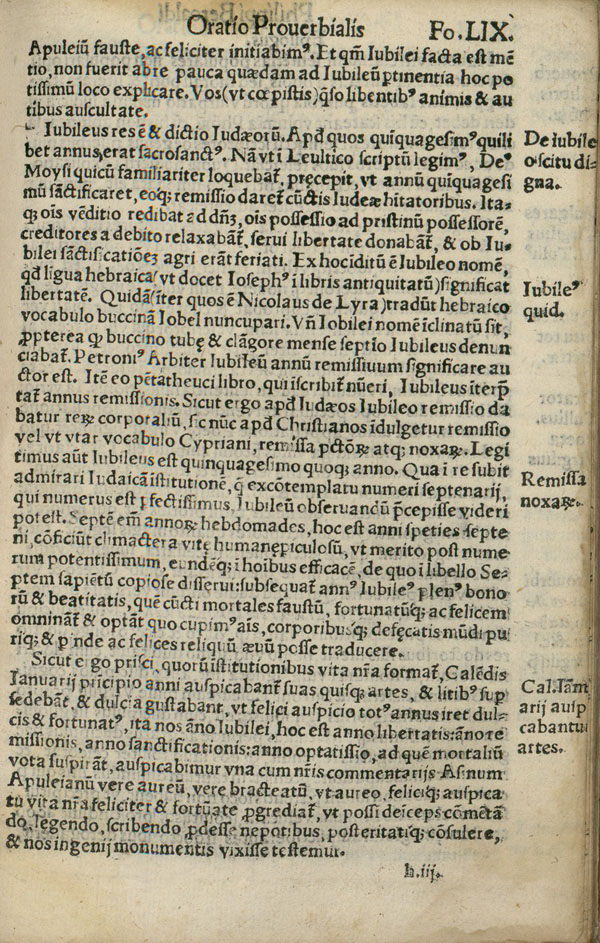 Oratio Prouerbialis Fo.LIX.
Apuleiū fauste, ac feliciter initiabimꝰ. Et qm̄ Iubilei facta est mē
tio, non fuerit abre pauca quædam ad Iubileū ꝑtinentia hoc po
tissimū loco explicare. Vos (vt cœpistis) q̄so libentibꝰ animis & au
tibus auscultate.
Iubileus res ē & dictio Iudæorū. Apd̄ quos quīquagesimꝰ quili
bet annus, erat sacrosanctꝰ. Nā vt ī Leuitico scriptū legimꝰ, Deꝰ
Moysi quicū familiariter loquebat̄, pręcepit, vt annū quīquagesi
mū sāctificaret, eoq; remissio daret̄ cūctis Iudeæ hītatoribus. Ita-
q; oīs vēditio redibat ad dn̄ꝫ, oīs possessio ad pristinū possessorē,
creditores a debito relaxabāt̄, serui libertate donabāt̄, & ob Iu-
bilei sāctificatiōeꝫ agri erāt feriati. Ex hoc īditū ē Iubileo nomē,
qd̄ ligua hebraica (vt docet Iosephꝰ ī libris antiquitatū) significat
libertatē. Quidā (iter quos ē Nicolaus de Lyra) tradūt hebraico
vocabulo buccinā Iobel nuncupari. Vn̄ Iobilei nomē īclinatū sit,
ꝓpterea ꝙ buccino tubę & clāgore mense septīo Iubileus denun
ciabat̄. Petroniꝰ Arbiter Iubileū annū remissiuum significare au
ctor est. Itē eo pētatheuci libro, qui iscribit̄ nūeri, Iubileus iterp̄
tat̄ annus remissionis. Sicut ergo apd̄ Iudæos Iubileo remissio da
batur reꝝ corporaliū, sic nūc apd̄ Christianos īdulgetur remissio
vel vt vtar vocabulo Cypriani, remissa pctōꝝ atq; noxaꝝ. Legi
timus aūt Iubileus est quinquagesimo quoq; anno. Qua ī re subit
admirari Iudaicā īstitutionē, q̄ ex cōtemplatu numeri septenarij,
qui numerus est ꝑfectissimus, Iubileū obseruandū p̄cepisse videri
potest. Septē em̄ annoꝝ hebdomades, hoc est anni speties septe
ni, cōficiūt climactera vitę humanę piculosū, vt merito post nume
rum potentissimum, eundēq; ī hoībus efficacē, de quo ī libello Se-
ptem sapiētū copiose disserui: subsequat̄ annꝰ Iubileꝰ plenꝰ bono
rū & beatitatis, quē cūcti mortales faustū, fortunatūq; ac felicem
ominant̄ & optāt quo cupimꝰ aīs, corporibusq; defęcatis mūdi pu
riq; & pinde ac felices reliquū ævū posse traducere.
Sicut ergo prisci, quorū īstitutionibus vita nr̄a format̄, Calēdis
Ianuarij prīcipio anni auspicabant̄ suas quisq; artes, & litibꝰ sup̄
sedebāt, & dulcia gustabant, vt felici auspicio totꝰ annus iret dul-
cis & fortunatꝰ, ita nos āno Iubilei, hoc est anno libertatis: āno re
missionis, anno sanctificationis: anno optatissīo, ad quē mortaliū
vota suspirāt, auspicabimur vna cum nr̄is commentarijs Asinum
Apuleianū vere aureū, vere bracteatū, vt aureo, feliciq; auspica-
tu vita nr̄a feliciter & fortūate ꝓgrediat̄, vt possī deīceps cōmētā
do, legendo, scribendo ꝓdesse nepotibus, posteritatiq; cōsulere,
& nos ingenij monumentis vixisse testemur.
h.iij.
De iubile
o scitu di
gna.
Iubileꝰ
quid.
Remissa
noxaꝝ.
Cal. Iān
arij ausp
cabantu
artes.